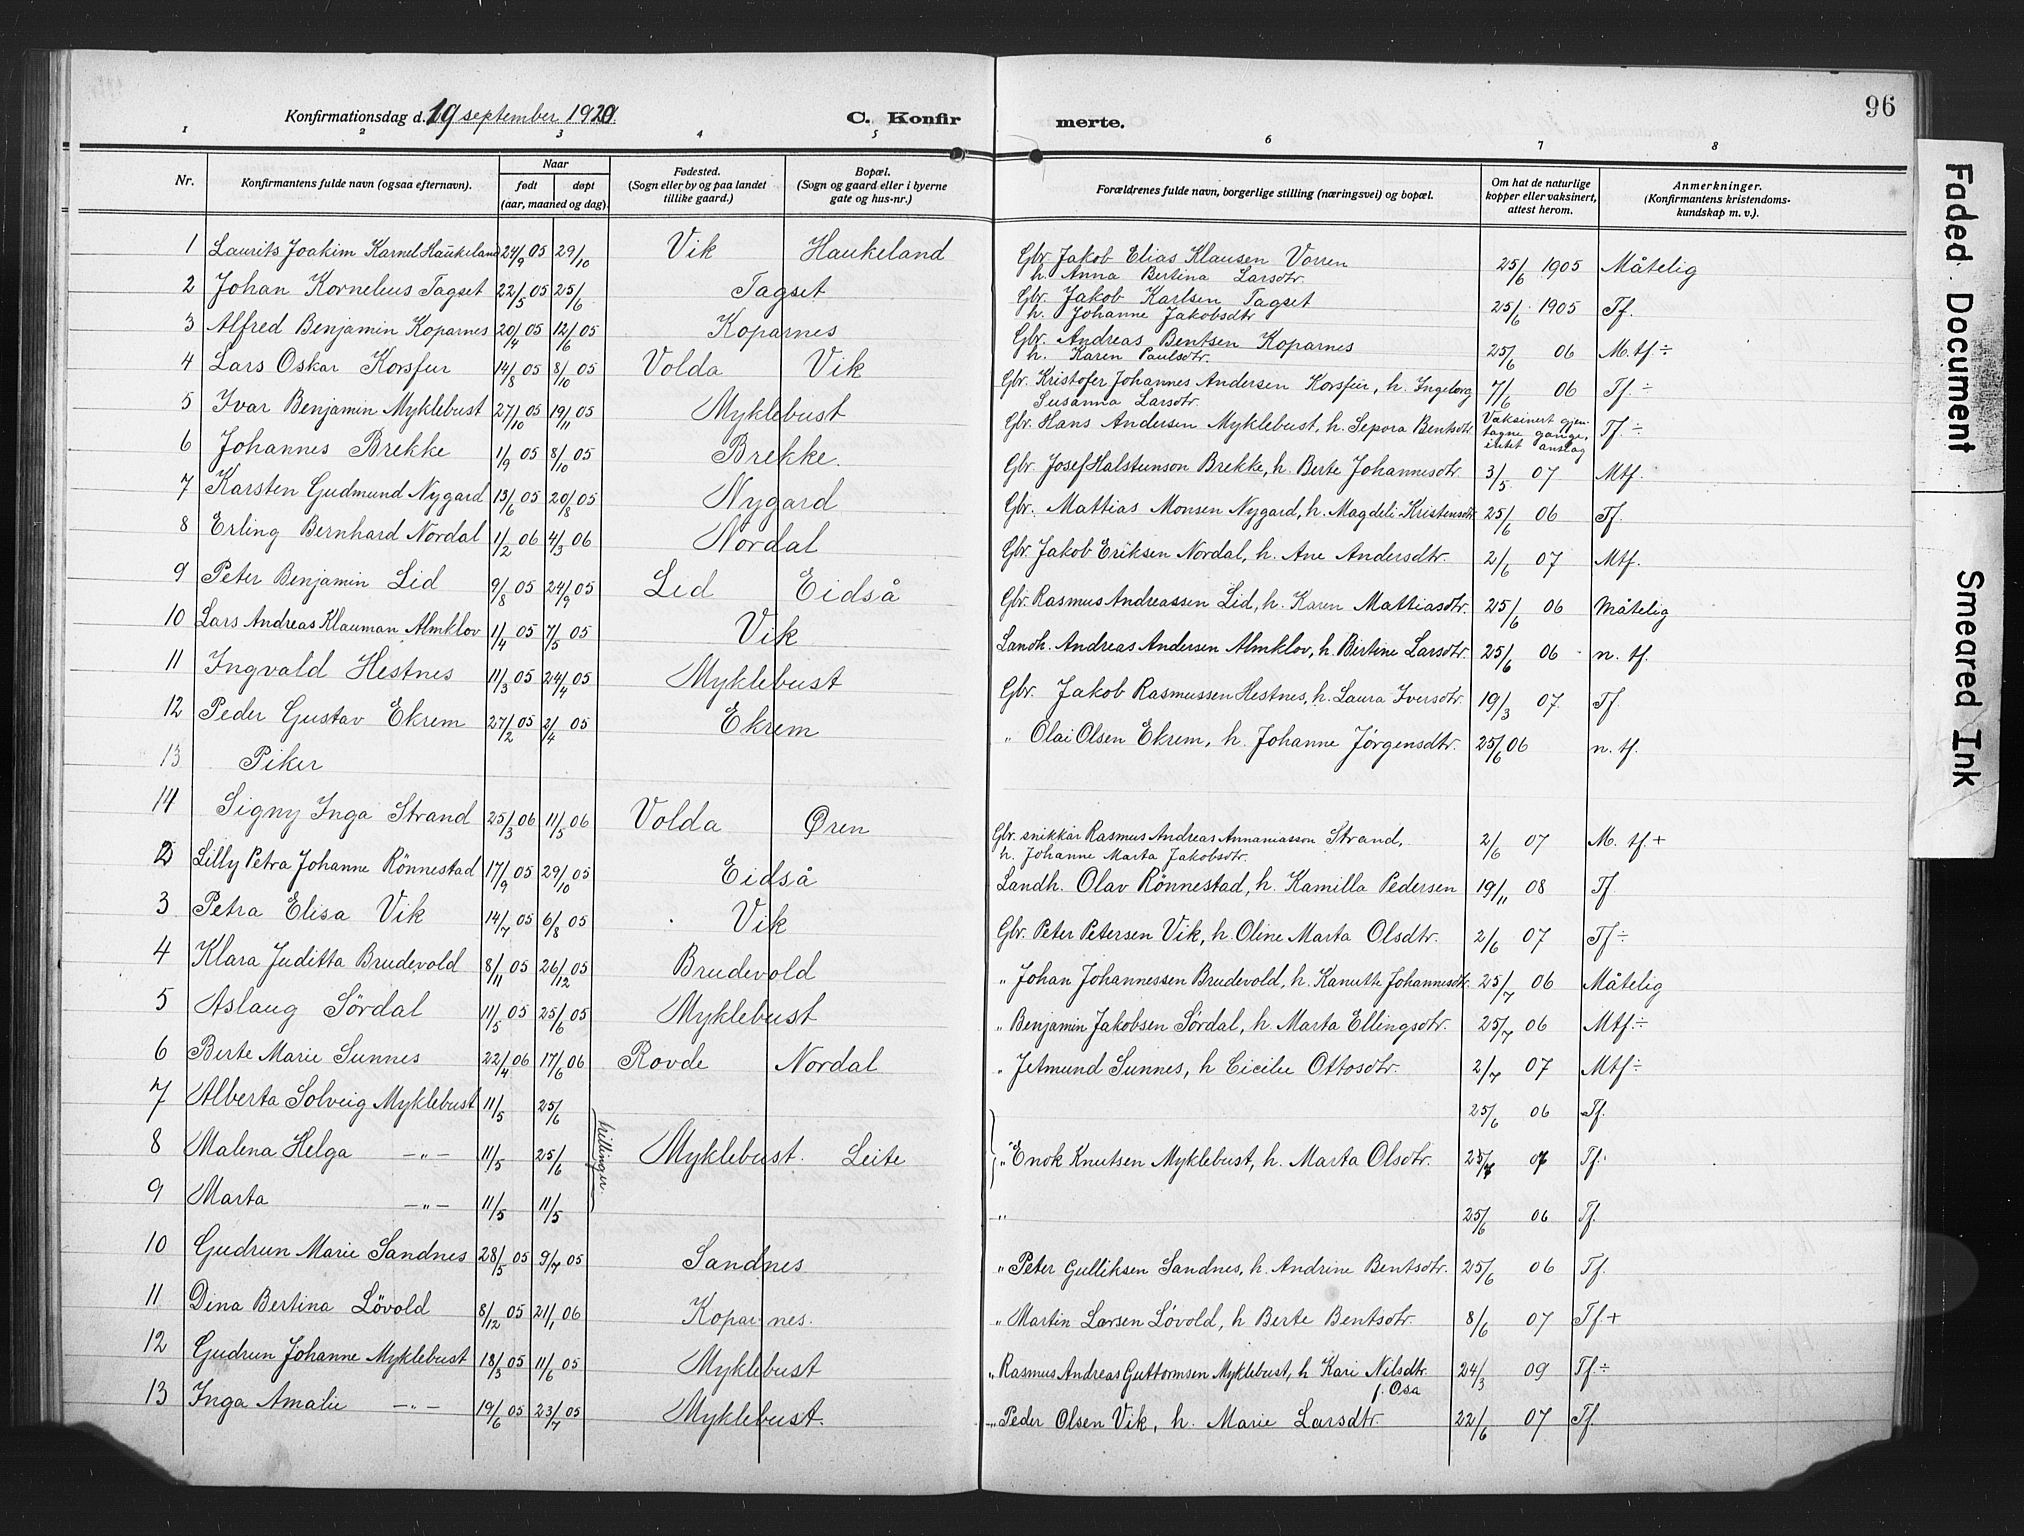 96
Konfirmationsdag d. 19 september 1920.
C. Konfirmerte.
1 2 3 4 5 6 7 8
Nr. Konfirmantens fulde navn (ogsaa efternavn). Naar født døpt (aar, maaned og dag). Fødested. (Sogn eller by og paa landet tillike gaard.) Bopæl. (Sogn og gaard eller i byerne gate og hus-nr.) Forældrenes fulde navn, borgerlige stilling (næringsvei) og bopæl. Om hat de naturlige kopper eller vaksinert, attest herom. Anmerkninger. (Konfirmantens kristendomskundskap m. v.).
1 Laurits Joakim Karnel Haukeland 24/9 05 29/10 Vik Haukeland Gbr. Jakob Elias Klausen Vorren h. Anna Bertina Larsdtr. 25/6 1905 Måtelig
2 Johan Kornelius Tagset 22/5 05 25/6 Tagset Gbr. Jakob Karlsen Tagset h. Johanne Jakobsdtr 25/6 1905 Tf.
3 Alfred Benjamin Koparnes 20/4 05 12/6 05 Koparnes Gbr. Andreas Bentsen Koparnes h. Karen Paulsdtr. 25/6 06 M.tf ÷
4 Lars Oskar Korsfur 14/8 05 8/10 05 Volda Vik Gbr. Kristofer Johannes Andersen Korsfur, h. Ingeborg Susanna Larsdtr. 7/6 06 Tf. ÷
5 Ivar Benjamin Myklebust 27/10 05 19/11 05 Myklebust Gbr. Hans Andersen Myklebust, h. Sepora Bentsdtr Vaksinert gjentagne gange, intet anslag Tf ÷
6 Johannes Brekke 1/9 05 8/10 05 Brekke. Gbr. Josef Halstenson Brekke, h. Berte Johannesdtr. 3/5 07 Mtf.
7 Karsten Gudmund Nygard 13/6 05 20/8 05 Nygard Gbr. Mattias Monsen Nygard, h. Magdeli Kristensdtr 25/6 06 Tf.
8 Erling Bernhard Nordal 1/2 06 4/3 06 Nordal Gbr. Jakob Eriksen Nordal, h. Ane Andersdtr. 2/6 07 Mtf.
9 Peter Benjamin Lid 9/8 05 24/9 05 Lid Eidså Gbr. Rasmus Andreassen Lid, h. Karen Mattiasdtr. 25/6 06 Måtelig
10 Lars Andreas Klauman Almklov 1/4 05 7/5 05 Vik Landh. Andreas Andersen Almklov, h. Bertine Larsdtr. 25/6 06 n. tf.
11 Ingvald Hestnes 11/3 05 24/4 05 Myklebust Gbr. Jakob Rasmussen Hestnes, h. Laura Iversdtr. 19/3 07 Tf
12 Peder Gustav Ekrem 27/2 05 2/4 05 Ekrem " Olai Olsen Ekrem, h. Johanne Jörgensdtr. 25/6 06 n. tf.
13 Piker
14 Signy Inga Strand 25/3 06 11/5 06 Volda Øren Gbr. snikkar Rasmus Andreas Annaniasson Strand, h. Johanne Marta Jakobsdtr. 2/6 07 M. tf +
2 Lilly Petra Johanne Rönnestad 17/9 05 29/10 05 Eidså Landh. Olav Rönnestad, h. Kamilla Pedersen 19/11 08 Tf
3 Petra Elisa Vik 14/7 05 6/8 05 Vik Gbr. Peter Petersen Vik, h. Oline Marta Olsdtr. 2/6 07 Tf ÷
4 Klara Juditta Brudevold 8/11 05 26/12 05 Brudevold " Johan Johannessen Brudevold, h. Kanutte Johannesdtr. 25/7 06 Måtelig
5 Aslaug Sördal 11/5 05 25/6 05 Myklebust " Benjamin Jakobsen Sördal, h. Marta Ellingsdtr. 25/7 06 Mtf ÷
6 Berte Marie Sunnes 22/4 06 17/6 06 Rovde Nordal " Jetmund Sunnes, h Cicilie Ottosdtr. 2/7 07 Mtf ÷
7 Alberta Solveig Myklebust 11/5 25/6 25/6 06 Tf.
8 Malena Helga —"— 11/5 25/6 trillinger Myklebust. Leite " Enok Knutsen Myklebust, h. Marta Olsdtr. Tf.
9 Marta —"— 11/5 11/5 " 25/6 06 Tf.
10 Gudrun Marie Sandnes 28/5 05 9/7 05 Sandnes " Peter Gulliksen Sandnes, h. Andrine Bentsdtr. 25/6 06 Tf.
11 Dina Bertina Lövold 8/12 05 21/1 06 Koparnes. " Martin Larsen Lövold, h Berte Bentsdtr. 8/6 07 Tf +
12 Gudrun Johanne Myklebust 18/3 05 11/6 05 Myklebust " Rasmus Andreas Guttormsen Myklebust, h Kari Nilsdtr f. Osa 24/3 09 Tf ÷
13 Inga Amalie —"— 19/6 05 23/7 05 Myklebust. " Peder Olsen Vik, h. Marie Larsdtr. 22/6 07 Tf.
Faded Document
Smeared Ink